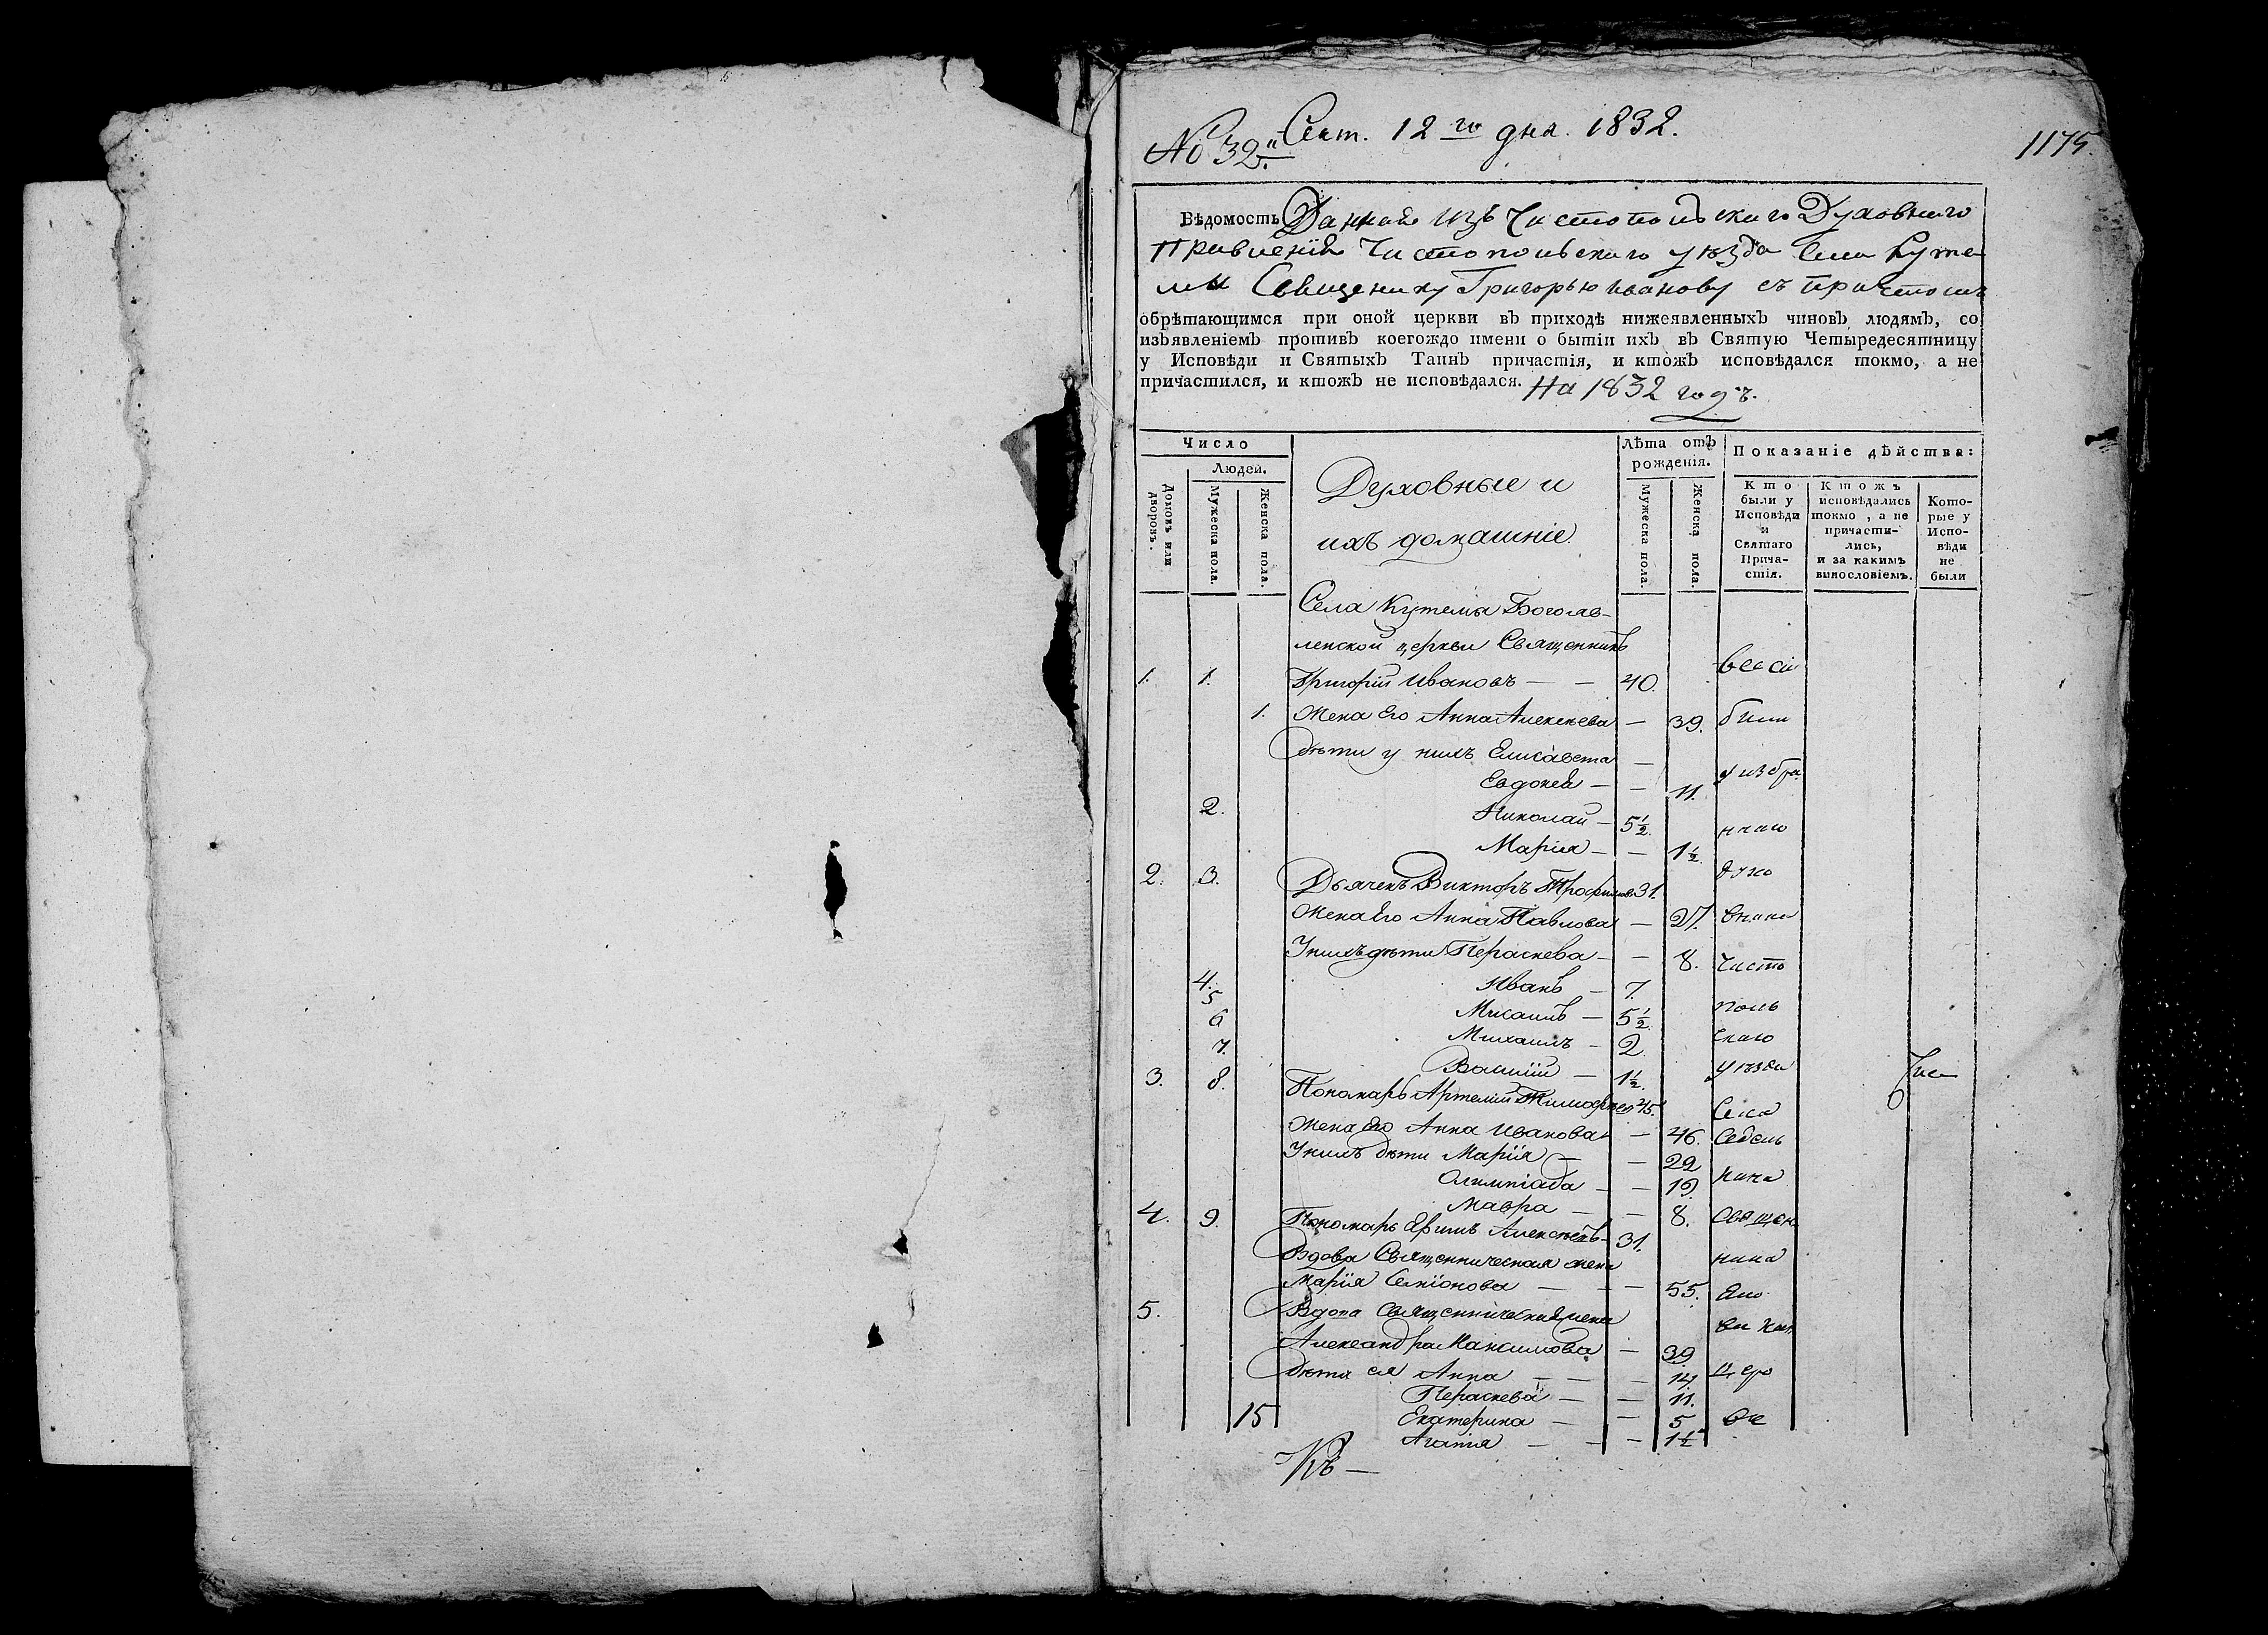 № 32. Сент. 12го дня. 1832.
1175.
Вѣдомость Данная изъ Чистопольскаго Духовнаго
Правленія Чистопольскаго уѣзда Села Куте-
мы Священнику Григорью Иванову съ причтомъ
обрѣтающимся при оной церкви въ приходѣ нижеявленныхъ чиновъ людямъ, со
изъявленіемъ противъ коегождо имени о бытіи ихъ въ Святую Четыредесятницу
у Исповѣди и Святыхъ Таинъ причастія, и ктожъ исповѣдался токмо, а не
причастился, и ктожъ не исповѣдался. На 1832 годъ.
Число
Людей.
Домовъ или дворовъ.
Мужеска пола.
Женска пола.
Духовные и
ихъ домашніе.
Лѣта отъ рожденія.
Мужеска пола.
Женска пола.
Показаніе дѣйства:
Кто были у Исповѣди и Святаго Прича- стія.
Ктожъ исповѣдались токмо, а не причасти- лись, и за какимъ винословіемъ.
Кото- рые у Испо- вѣди не были
Села Кутемы Богояв-
ленской церкви Священникъ
1. 1. Григорій Ивановъ — — 40. Все сіи
1. Жена Его Анна Алексѣева — 39. были
дѣти у нихъ Елисавета —
Евдокея — — 11.
2. Николай — 5½.
Марія — — 1½.
2. 3. Дьячекъ Викторъ Трофимовъ 31.
Жена Его Анна Павлова — 27.
У нихъ дѣти Пераскева — — 8. Чисто
4. Иванъ — 7.
5 Мисаилъ — 5½. поль
6 Михаилъ — 2. скаго
7. Василій — 1½. уѣзда
3. 8. Пономарь Артемій Тимофѣев 45. Села
Жена Его Анна Иванова — 46. Седель
У нихъ дѣти Марія — — 22
Олимпіада — — 19. кина
Мавра — — 8. Священ
4. 9. Пономарь Ефимъ Алексѣевъ — 31.
Вдова Священническая жена
Марія Семіонова — — 55.
5. Вдова Священническая жена
Александра Максимова — 39.
дѣти ея Анна — — — 14
Пераскева — — 11.
15 Екатерина — — 5
Агапія — — — 1½